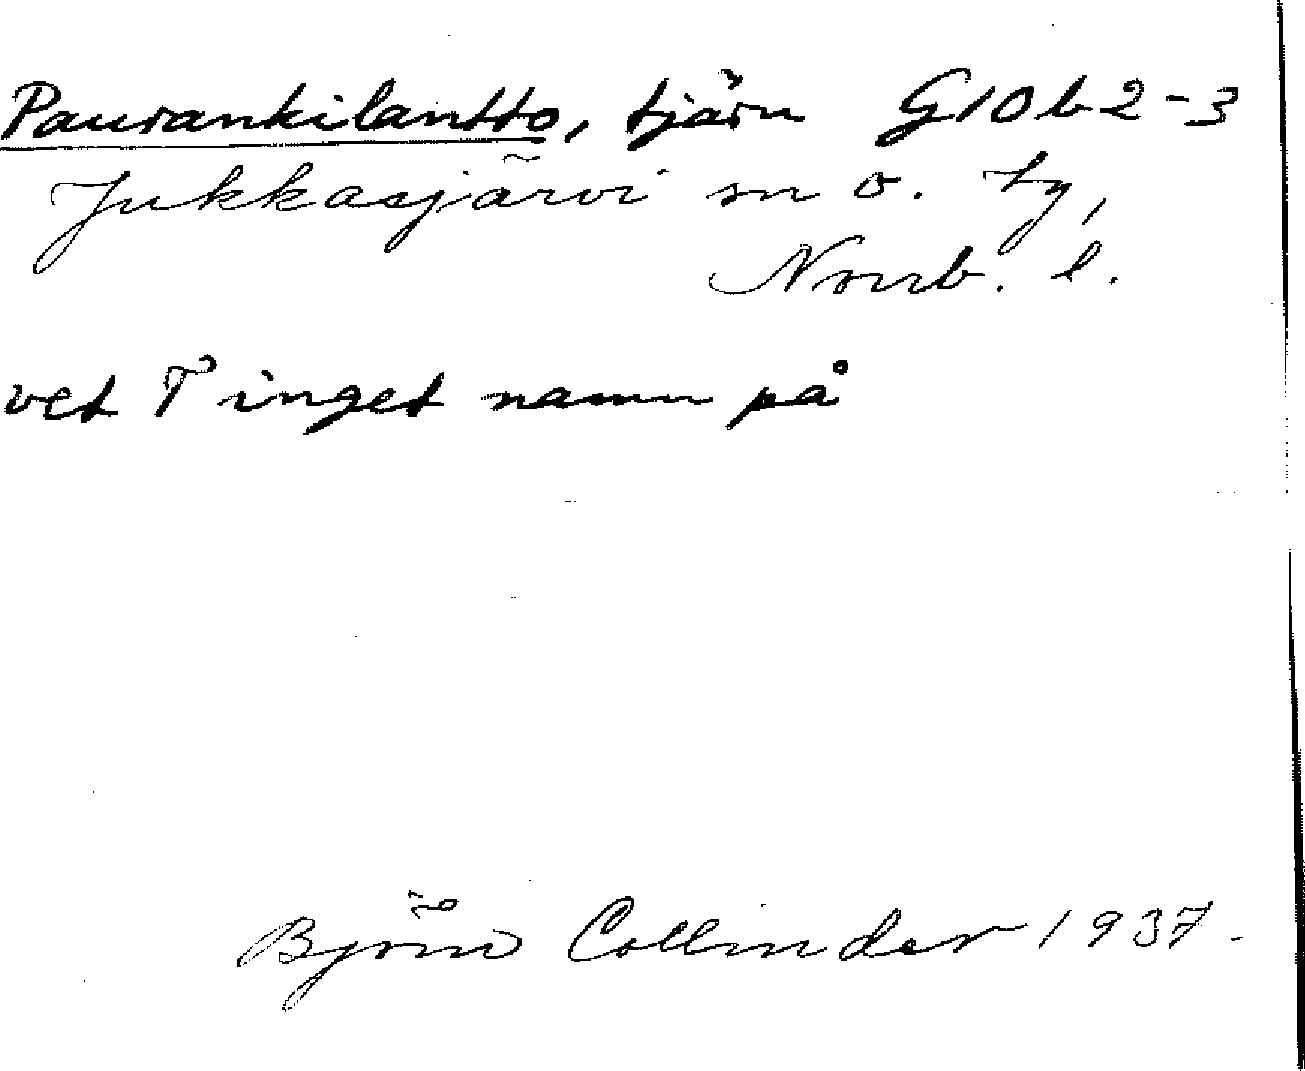 Paurankilantto, tjärn G10b2-3
Jukkasjärvi sn o. by,
Norrb. l.
vet T inget namn på
Björn Collinder 1937.